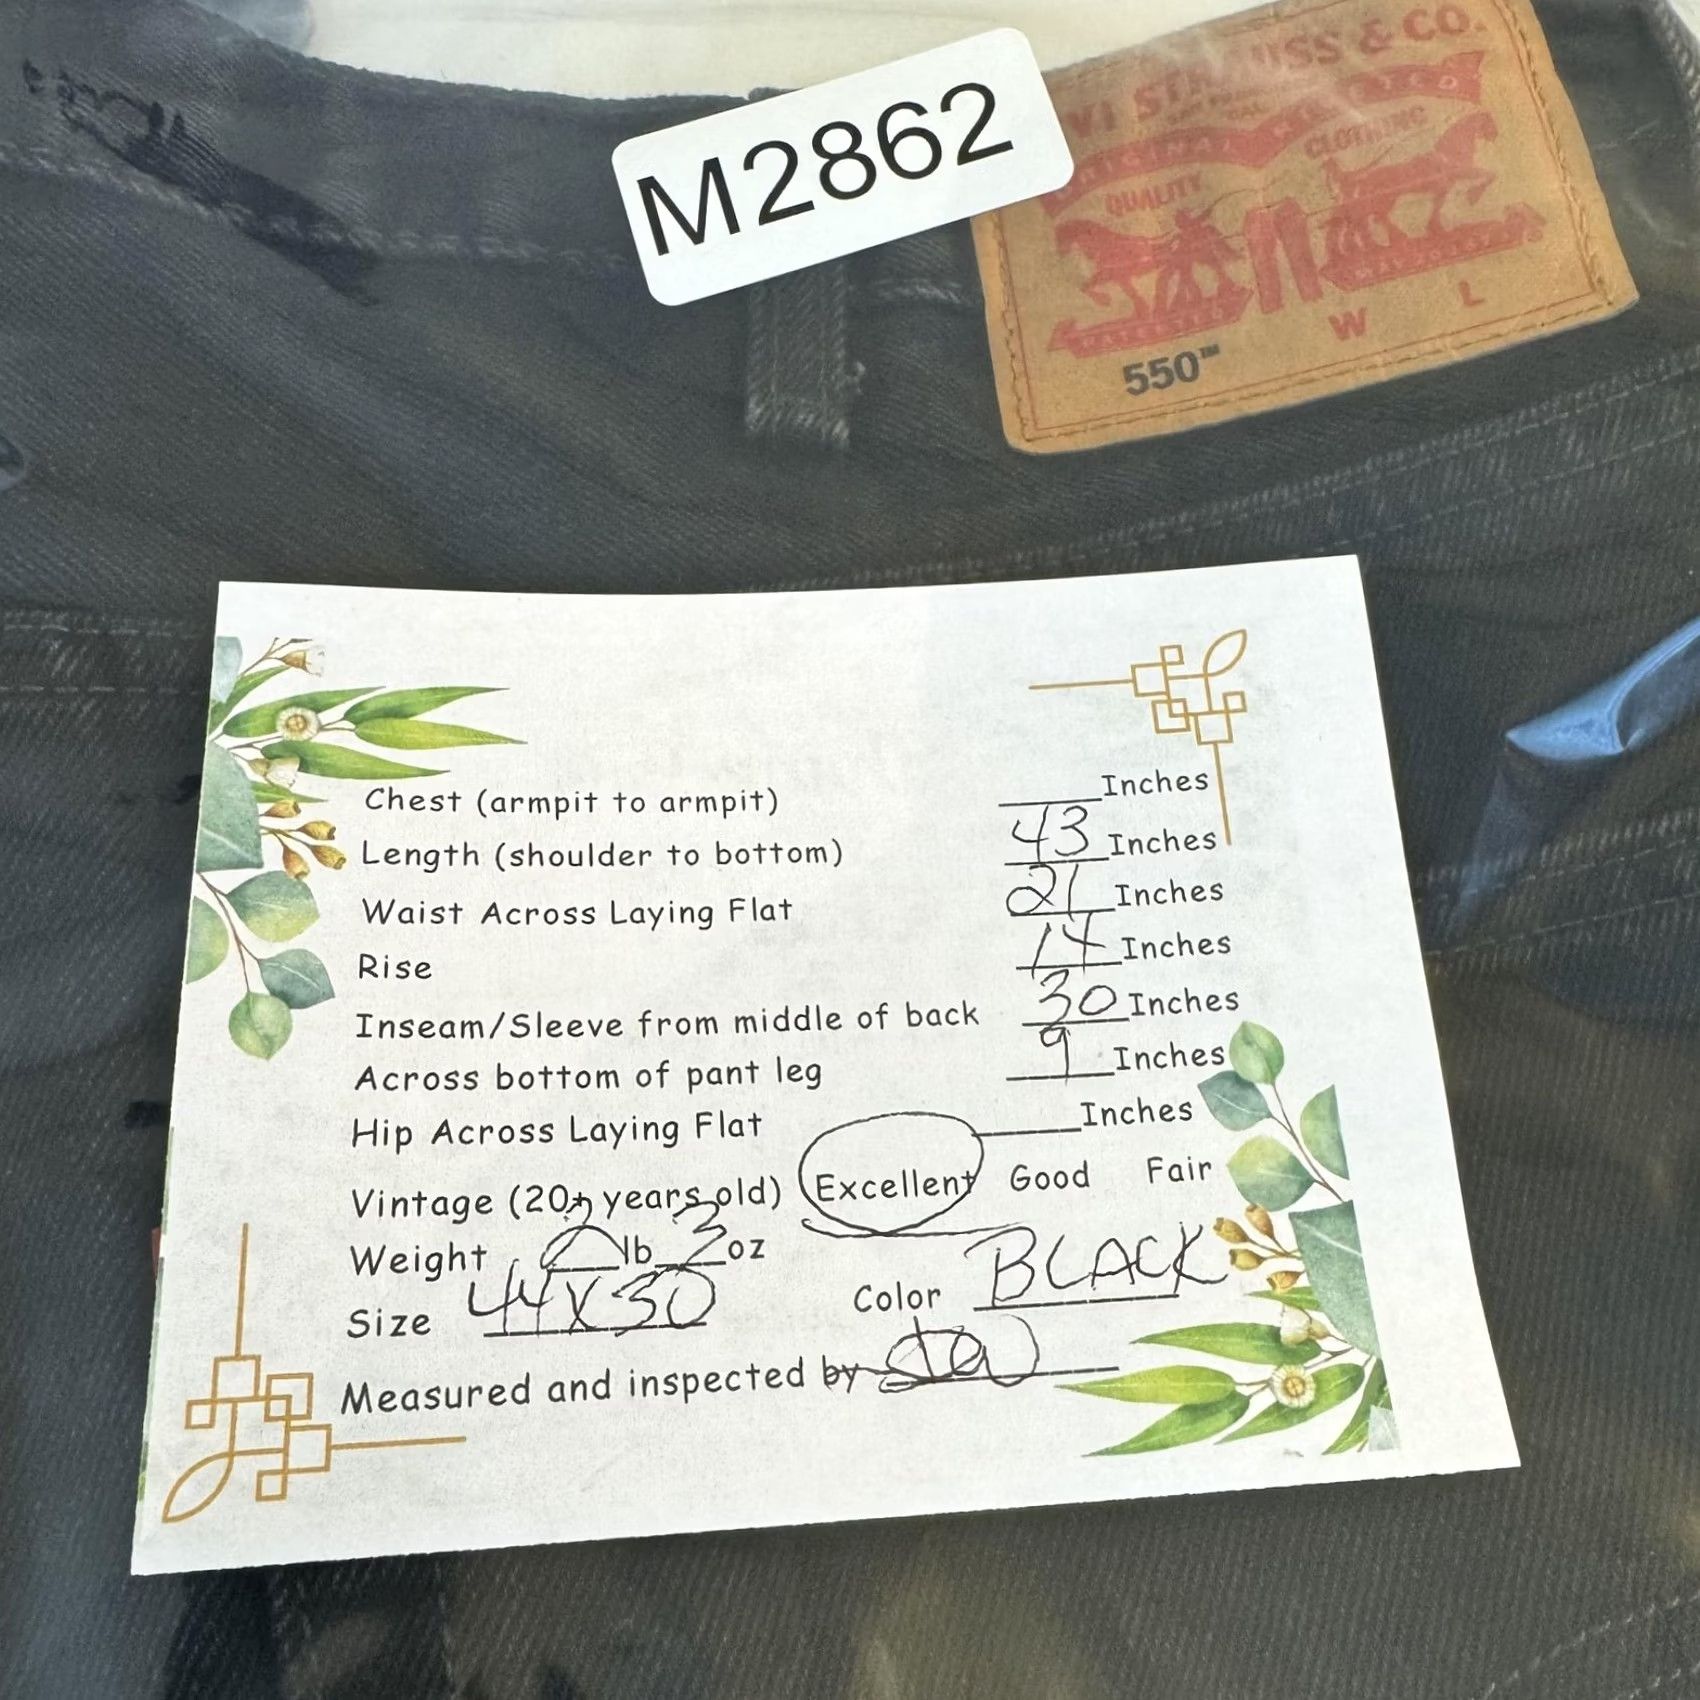 M2862
LEVI STRAUSS & CO.
QUALITY CLOTHING
PATENTED
550™ W L
Chest (armpit to armpit) ____Inches
Length (shoulder to bottom) 43 Inches
Waist Across Laying Flat 21 Inches
Rise 14 Inches
Inseam/Sleeve from middle of back 30 Inches
Across bottom of pant leg 9 Inches
Hip Across Laying Flat ____Inches
Vintage (20+ years old) Excellent Good Fair
Weight 2 lb 3 oz
Size 44X30 Color BLACK
Measured and inspected by